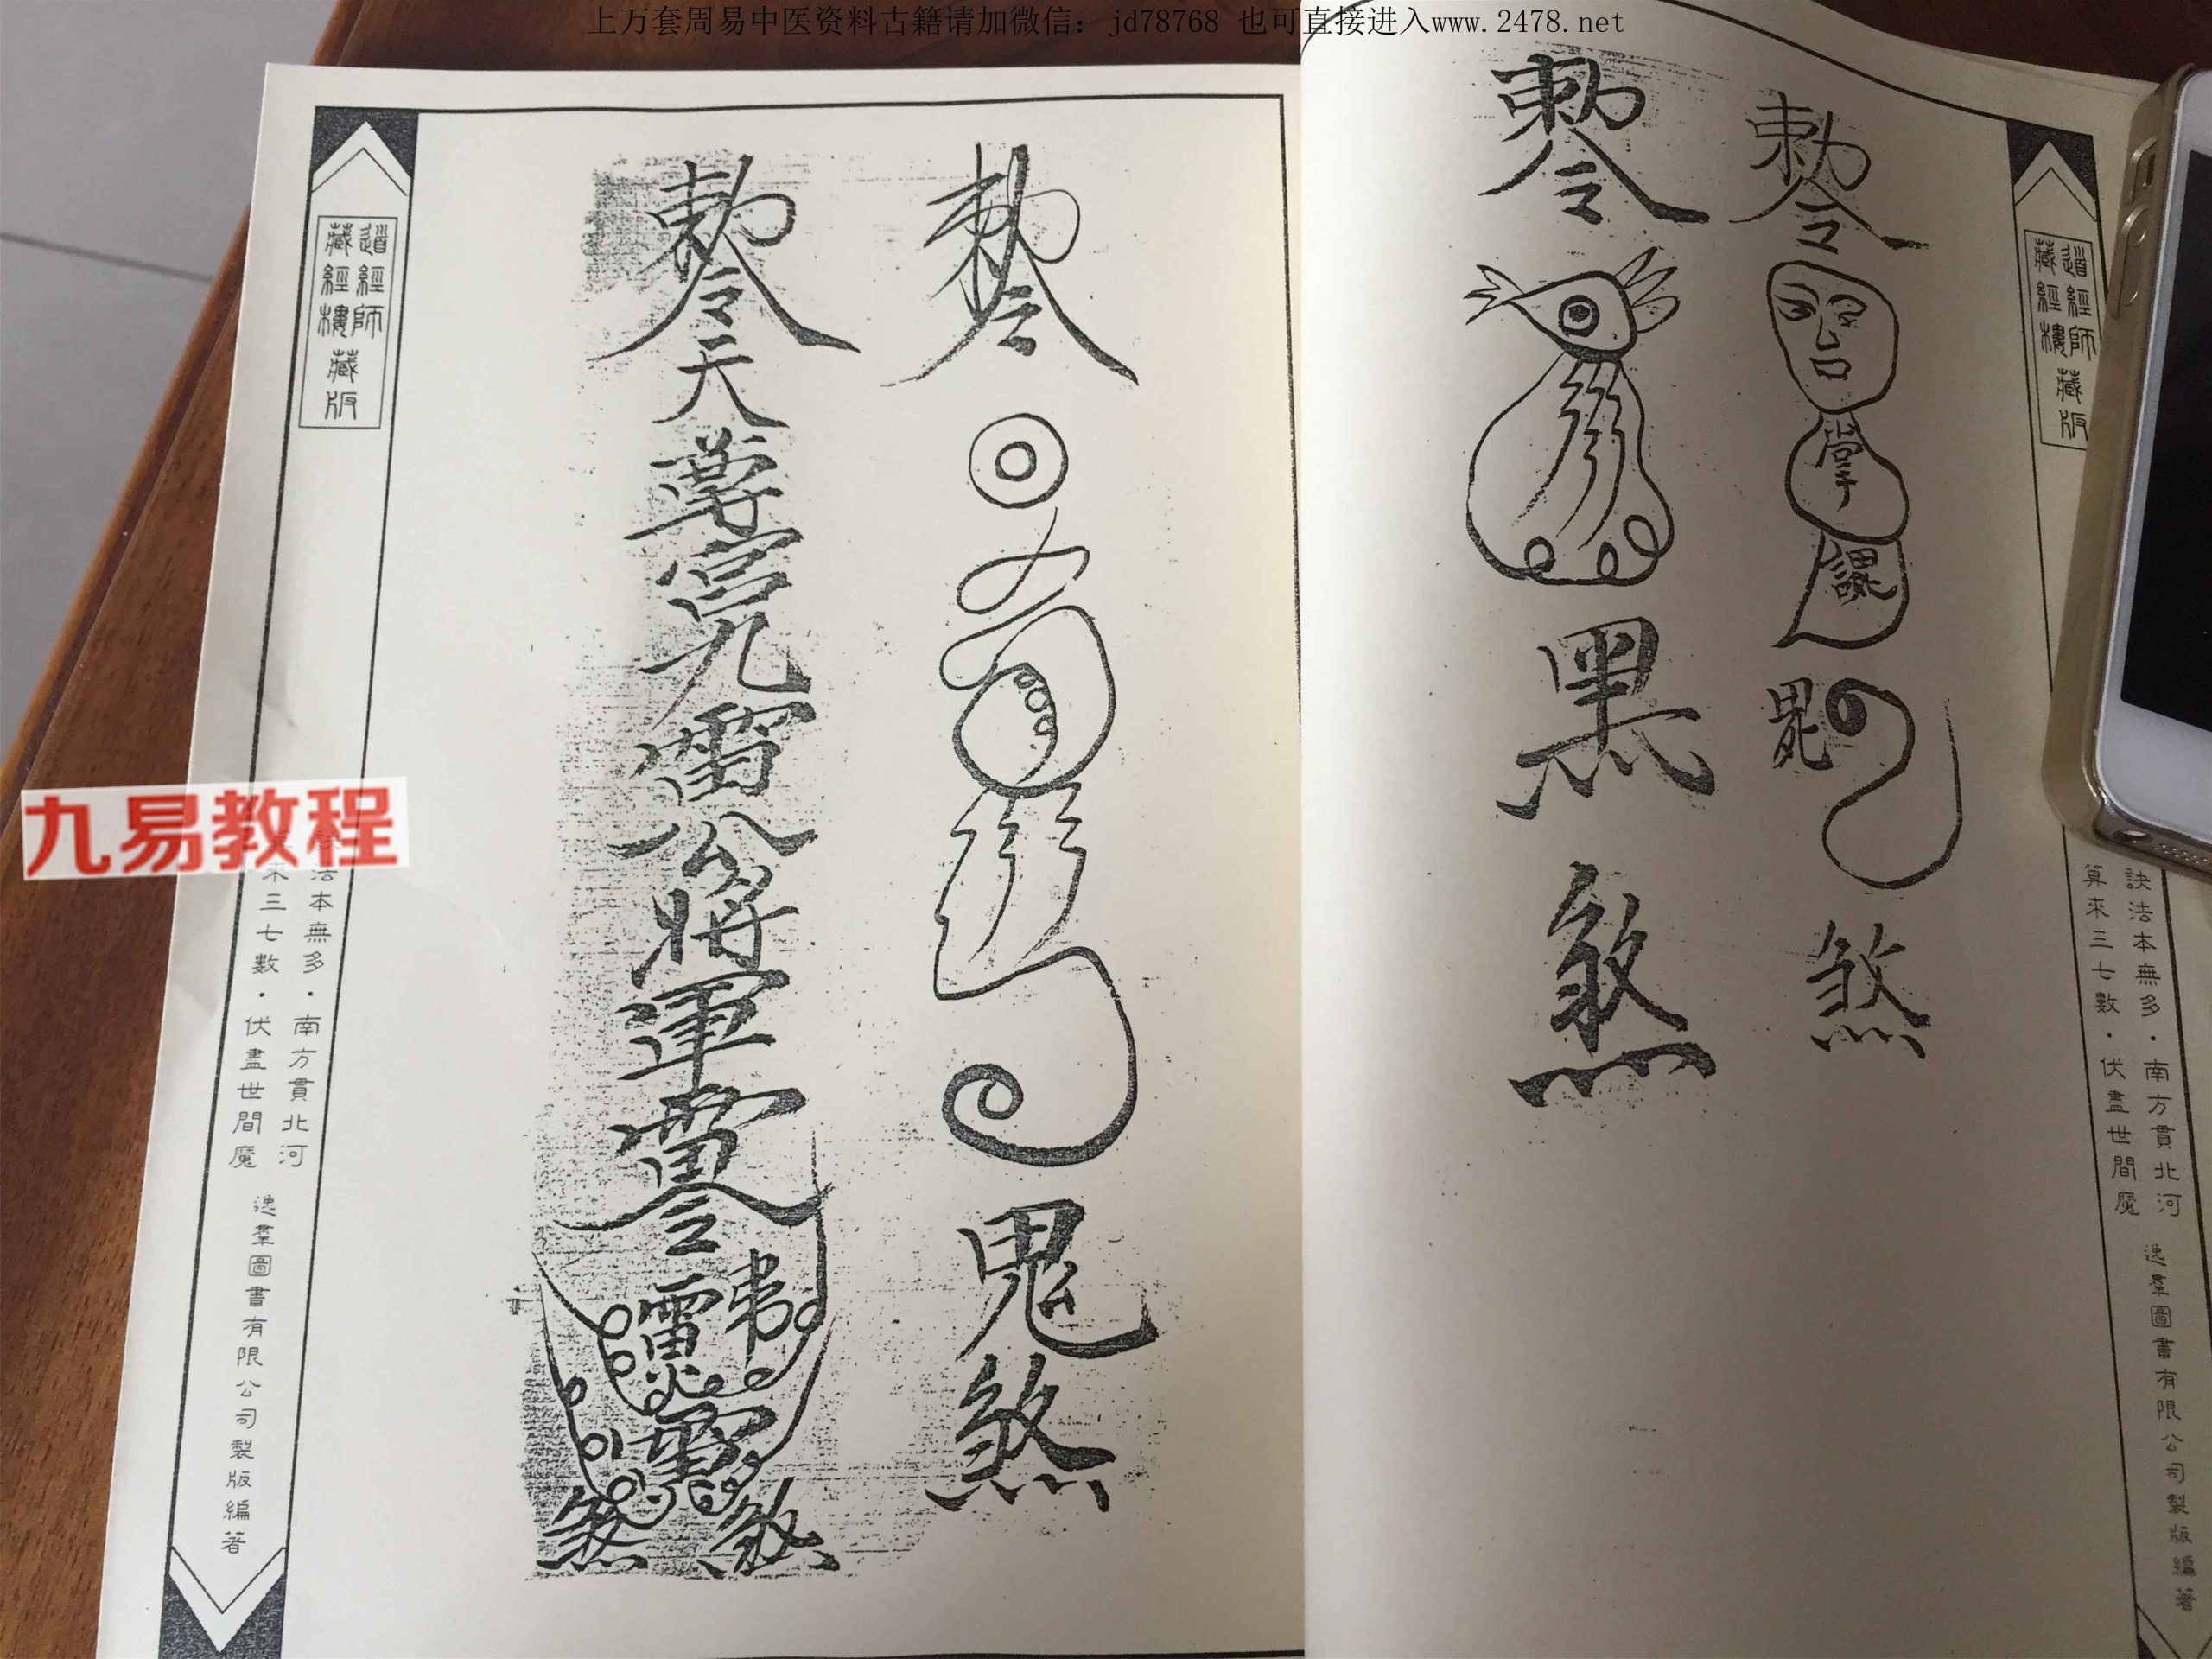 上万套周易中医资料古籍请加微信：jd78768 也可直接进入www.2478.net
道經師
藏經樓
藏版
訣法本無多．南方貫北河
算來三七數．伏盡世間魔
逸羣圖書有限公司製版編著
勅令
煞
勅令
黑
煞
勅令
鬼
煞
勅令
天
尊
雷
公
將
軍
煞
煞
道經師
藏經樓
藏版
九易教程
法本無多．南方貫北河
來三七數．伏盡世間魔
逸羣圖書有限公司製版編著